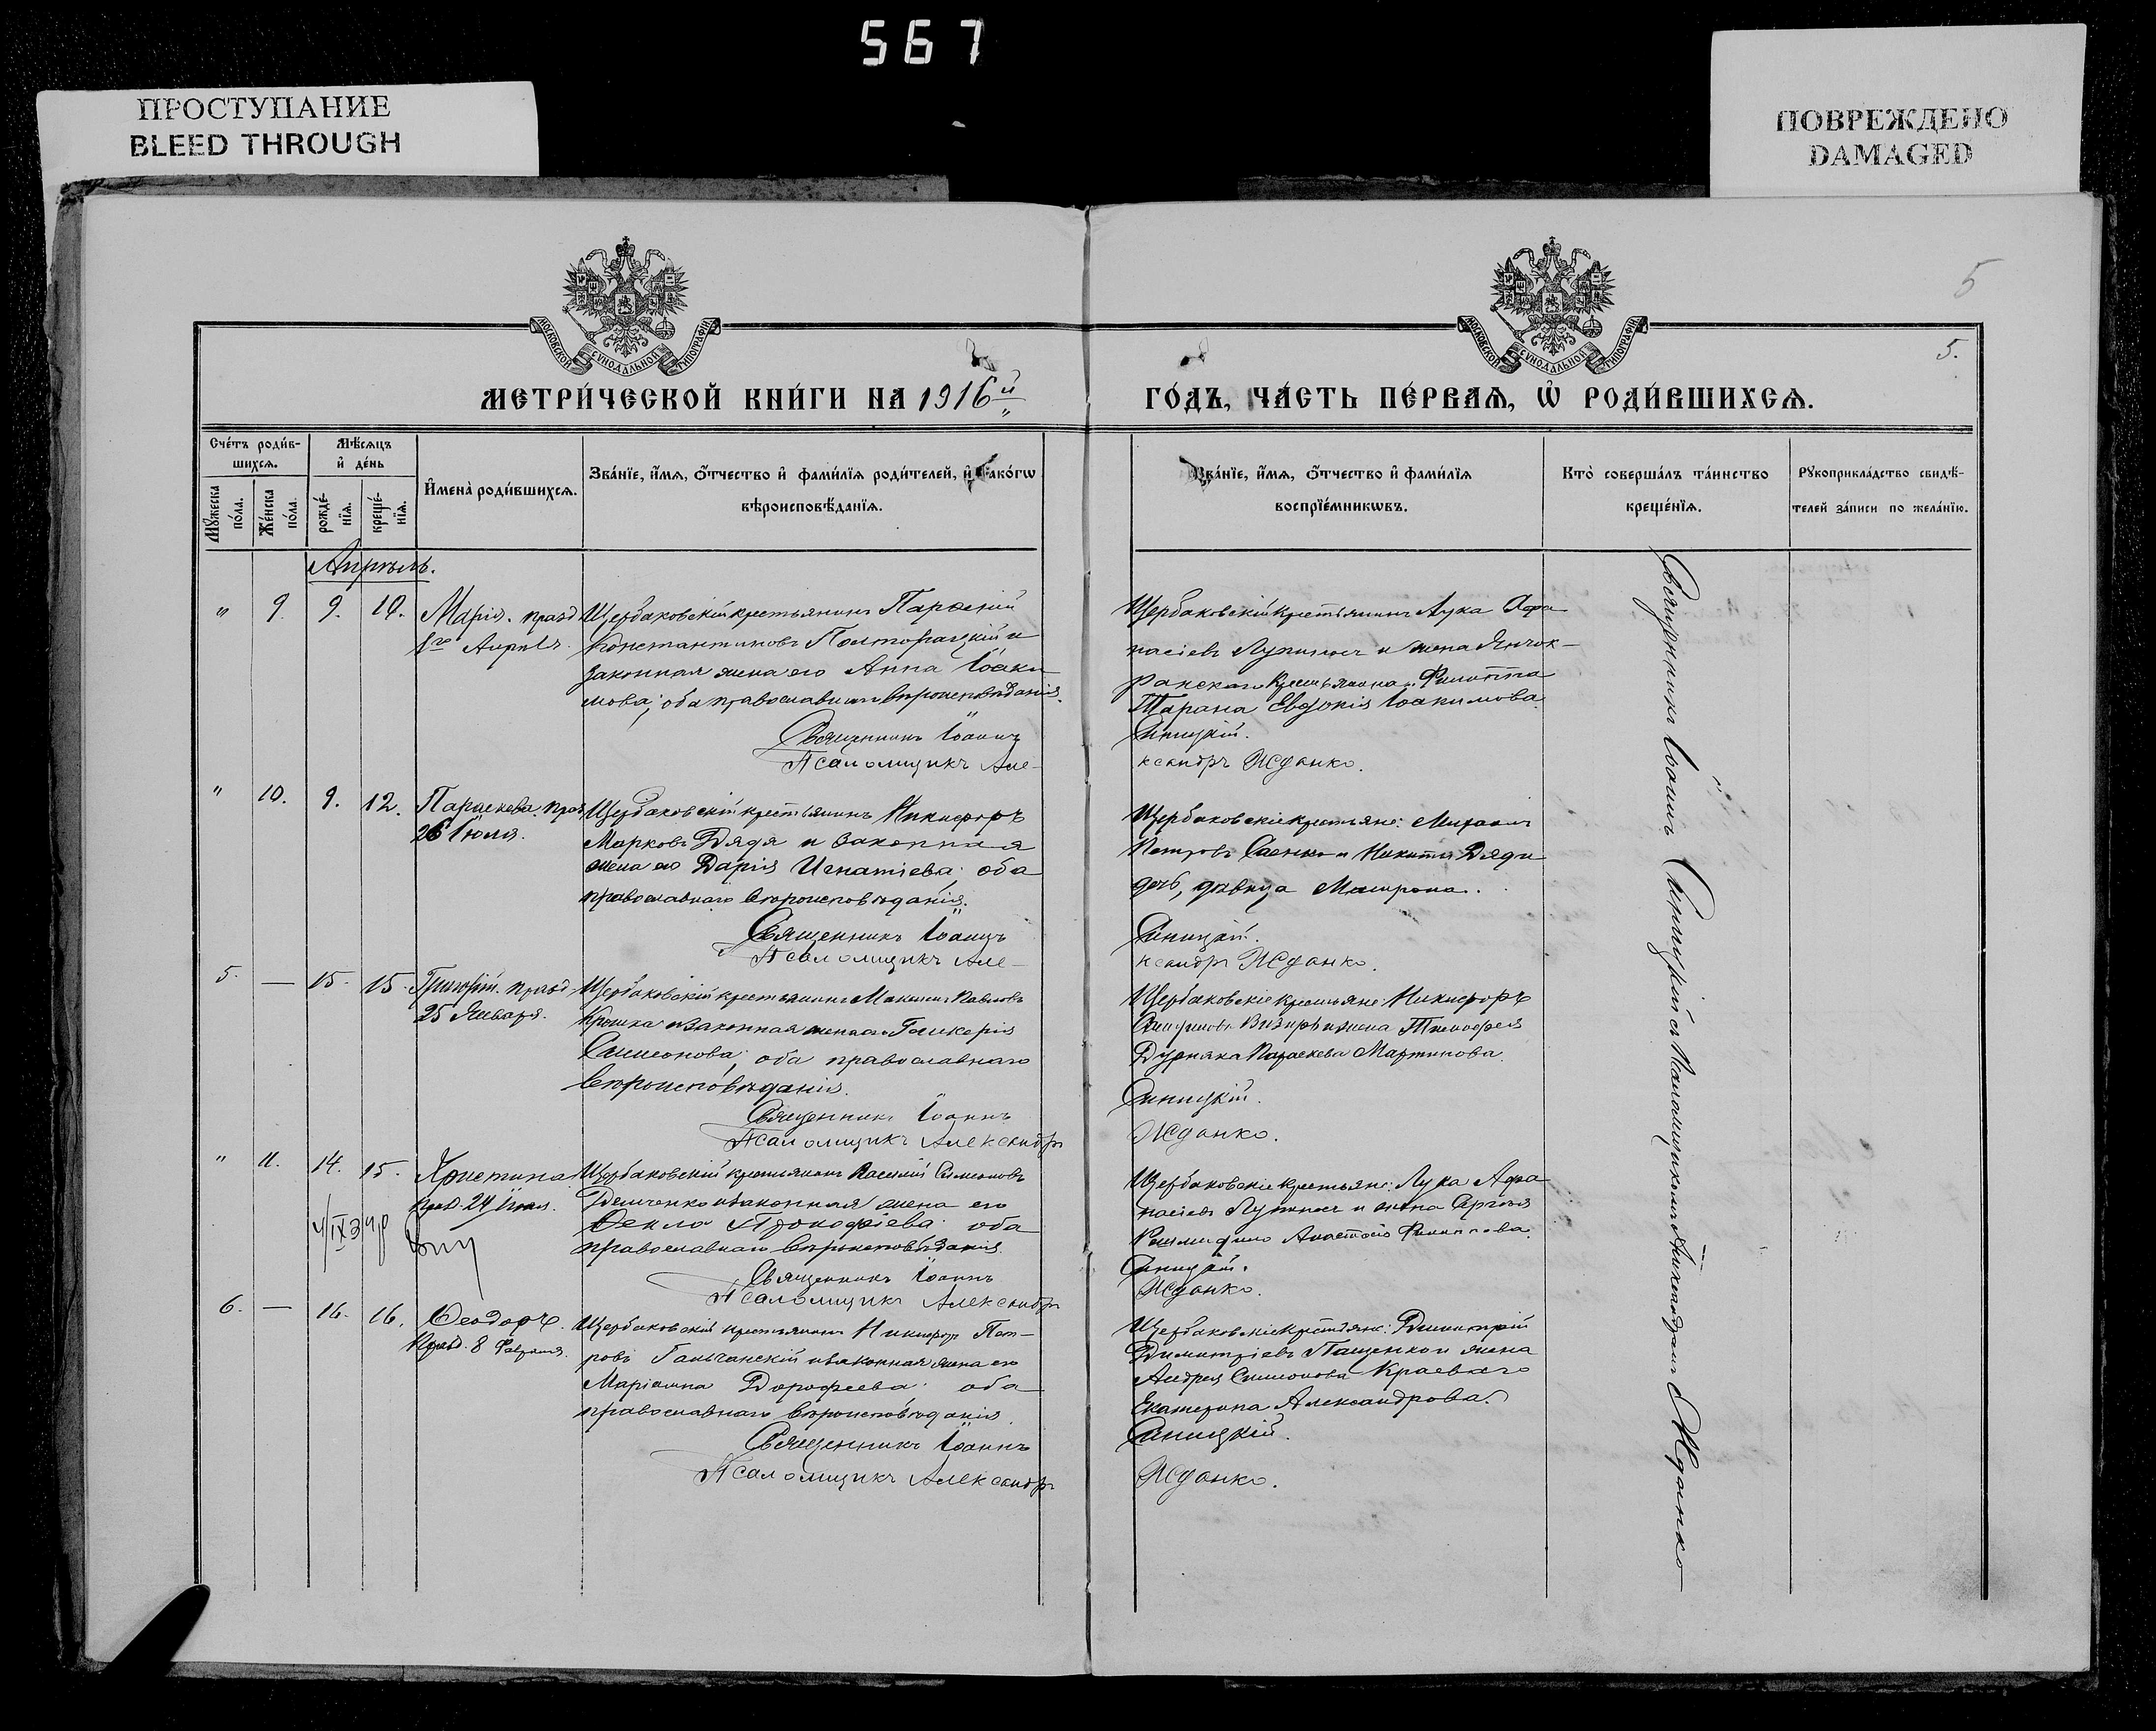 567
ПРОСТУПАНИЕ
BLEED THROUGH
ПОВРЕЖДЕНО
DAMAGED
5
МОСКОВСКОЙ СѴНОДАЛЬНОЙ ТИПОГРАФІИ
МОСКОВСКОЙ СѴНОДАЛЬНОЙ ТИПОГРАФІИ
5.
МЕТРИ́ЧЕСКОЙ КНИ́ГИ НА 1916й
ГО́ДЪ, ЧА́СТЬ ПЕ́РВАѦ, Ѽ РОДИ́ВШИХСѦ.
Сче́тъ роди́в-
шихсѧ.
Мѣ́сѧцъ
и҆ де́нь
Мꙋ́жеска по́ла.
Же́нска по́ла.
рожде́-
нїѧ.
креще́-
нїѧ.
И҆мена̀ роди́вшихсѧ.
Зва́нїе, и҆́мѧ, ѻ҆́тчество и҆ фами́лїѧ роди́телей, и҆ како́гѡ
вѣроисповѣ́данїѧ.
Зва́нїе, и҆́мѧ, ѻ҆́тчество и҆ фами́лїѧ
воспрїе́мникѡвъ.
Кто̀ соверша́лъ та́инство
креще́нїѧ.
Рꙋкоприкла́дство свидѣ́-
телей за́писи по жела́нїю.
Апрѣль.
" 9. 9. 10. Марія. празд
1го Апрѣля.
Щербаковскій крестьянинъ
Константиновъ Полторацкій и
законная жена его Анна Іоаки-
мова; оба православнаго вѣроисповѣданія.
Священникъ Іоаннъ
Псаломщикъ Але-
Щербаковскій крестьянинъ Лука Афа-
насіевъ и жена Янчок-
ракскаго крестьянина Филиппа
Тарана Евдокія Іоакимова.
Синицкій.
ксандръ Жданко.
" 10. 9. 12. Параскева. празд
26 Іюля.
Щербаковскій крестьянинъ Никифоръ
Марковъ Дядя и законная
жена его Дарія Игнатіева; оба
православнаго вѣроисповѣданія.
Священникъ Іоаннъ
Псаломщикъ Але-
Щербаковскіе крестьяне: Михаилъ
Петровъ Саенко и Никиты Дяди
дочь, дѣвица Матрона.
Синицкій.
ксандръ Жданко.
5. — 15. 15. Григорій. празд
25 Января.
Щербаковскій крестьянинъ Максимъ Павловъ
Крошка и законная жена его Гликерія
Симеонова; оба православнаго
вѣроисповѣданія.
Священникъ Іоаннъ
Псаломщикъ Александръ
Щербаковскіе крестьяне: Никифоръ
Визиръ и жена Тимофея
Дурняка Параскева Мартинова.
Синицкій.
Жданко.
" 11. 14. 15. Христина
празд. 24 Іюля.
Щербаковскій крестьянинъ Василій Симеоновъ
Демченко и законная жена его
Ѳекла Прокофіева; оба
православнаго вѣроисповѣданія.
Священникъ Іоаннъ
Псаломщикъ Александръ
Щербаковскіе крестьяне: Лука Афа-
насіевъ и жена Сергѣя
Анастасія Филиппова.
Синицкій.
Жданко.
6. — 16. 16. Ѳеодоръ.
Празд. 8 Февраля.
Щербаковскій крестьянинъ Никифоръ Пет-
ровъ Гальчанскій и законная жена его
Маріамна Дорофеева; оба
православнаго вѣроисповѣданія.
Священникъ Іоаннъ
Псаломщикъ Александръ
Щербаковскіе крестьяне: Димитрій
Димитріевъ Пащенко и жена
Андрея Симеонова Краеваго
Екатерина Александрова.
Синицкій.
Жданко.
Священникъ Іоаннъ Синицкій съ Псаломщикомъ Александромъ Жданко